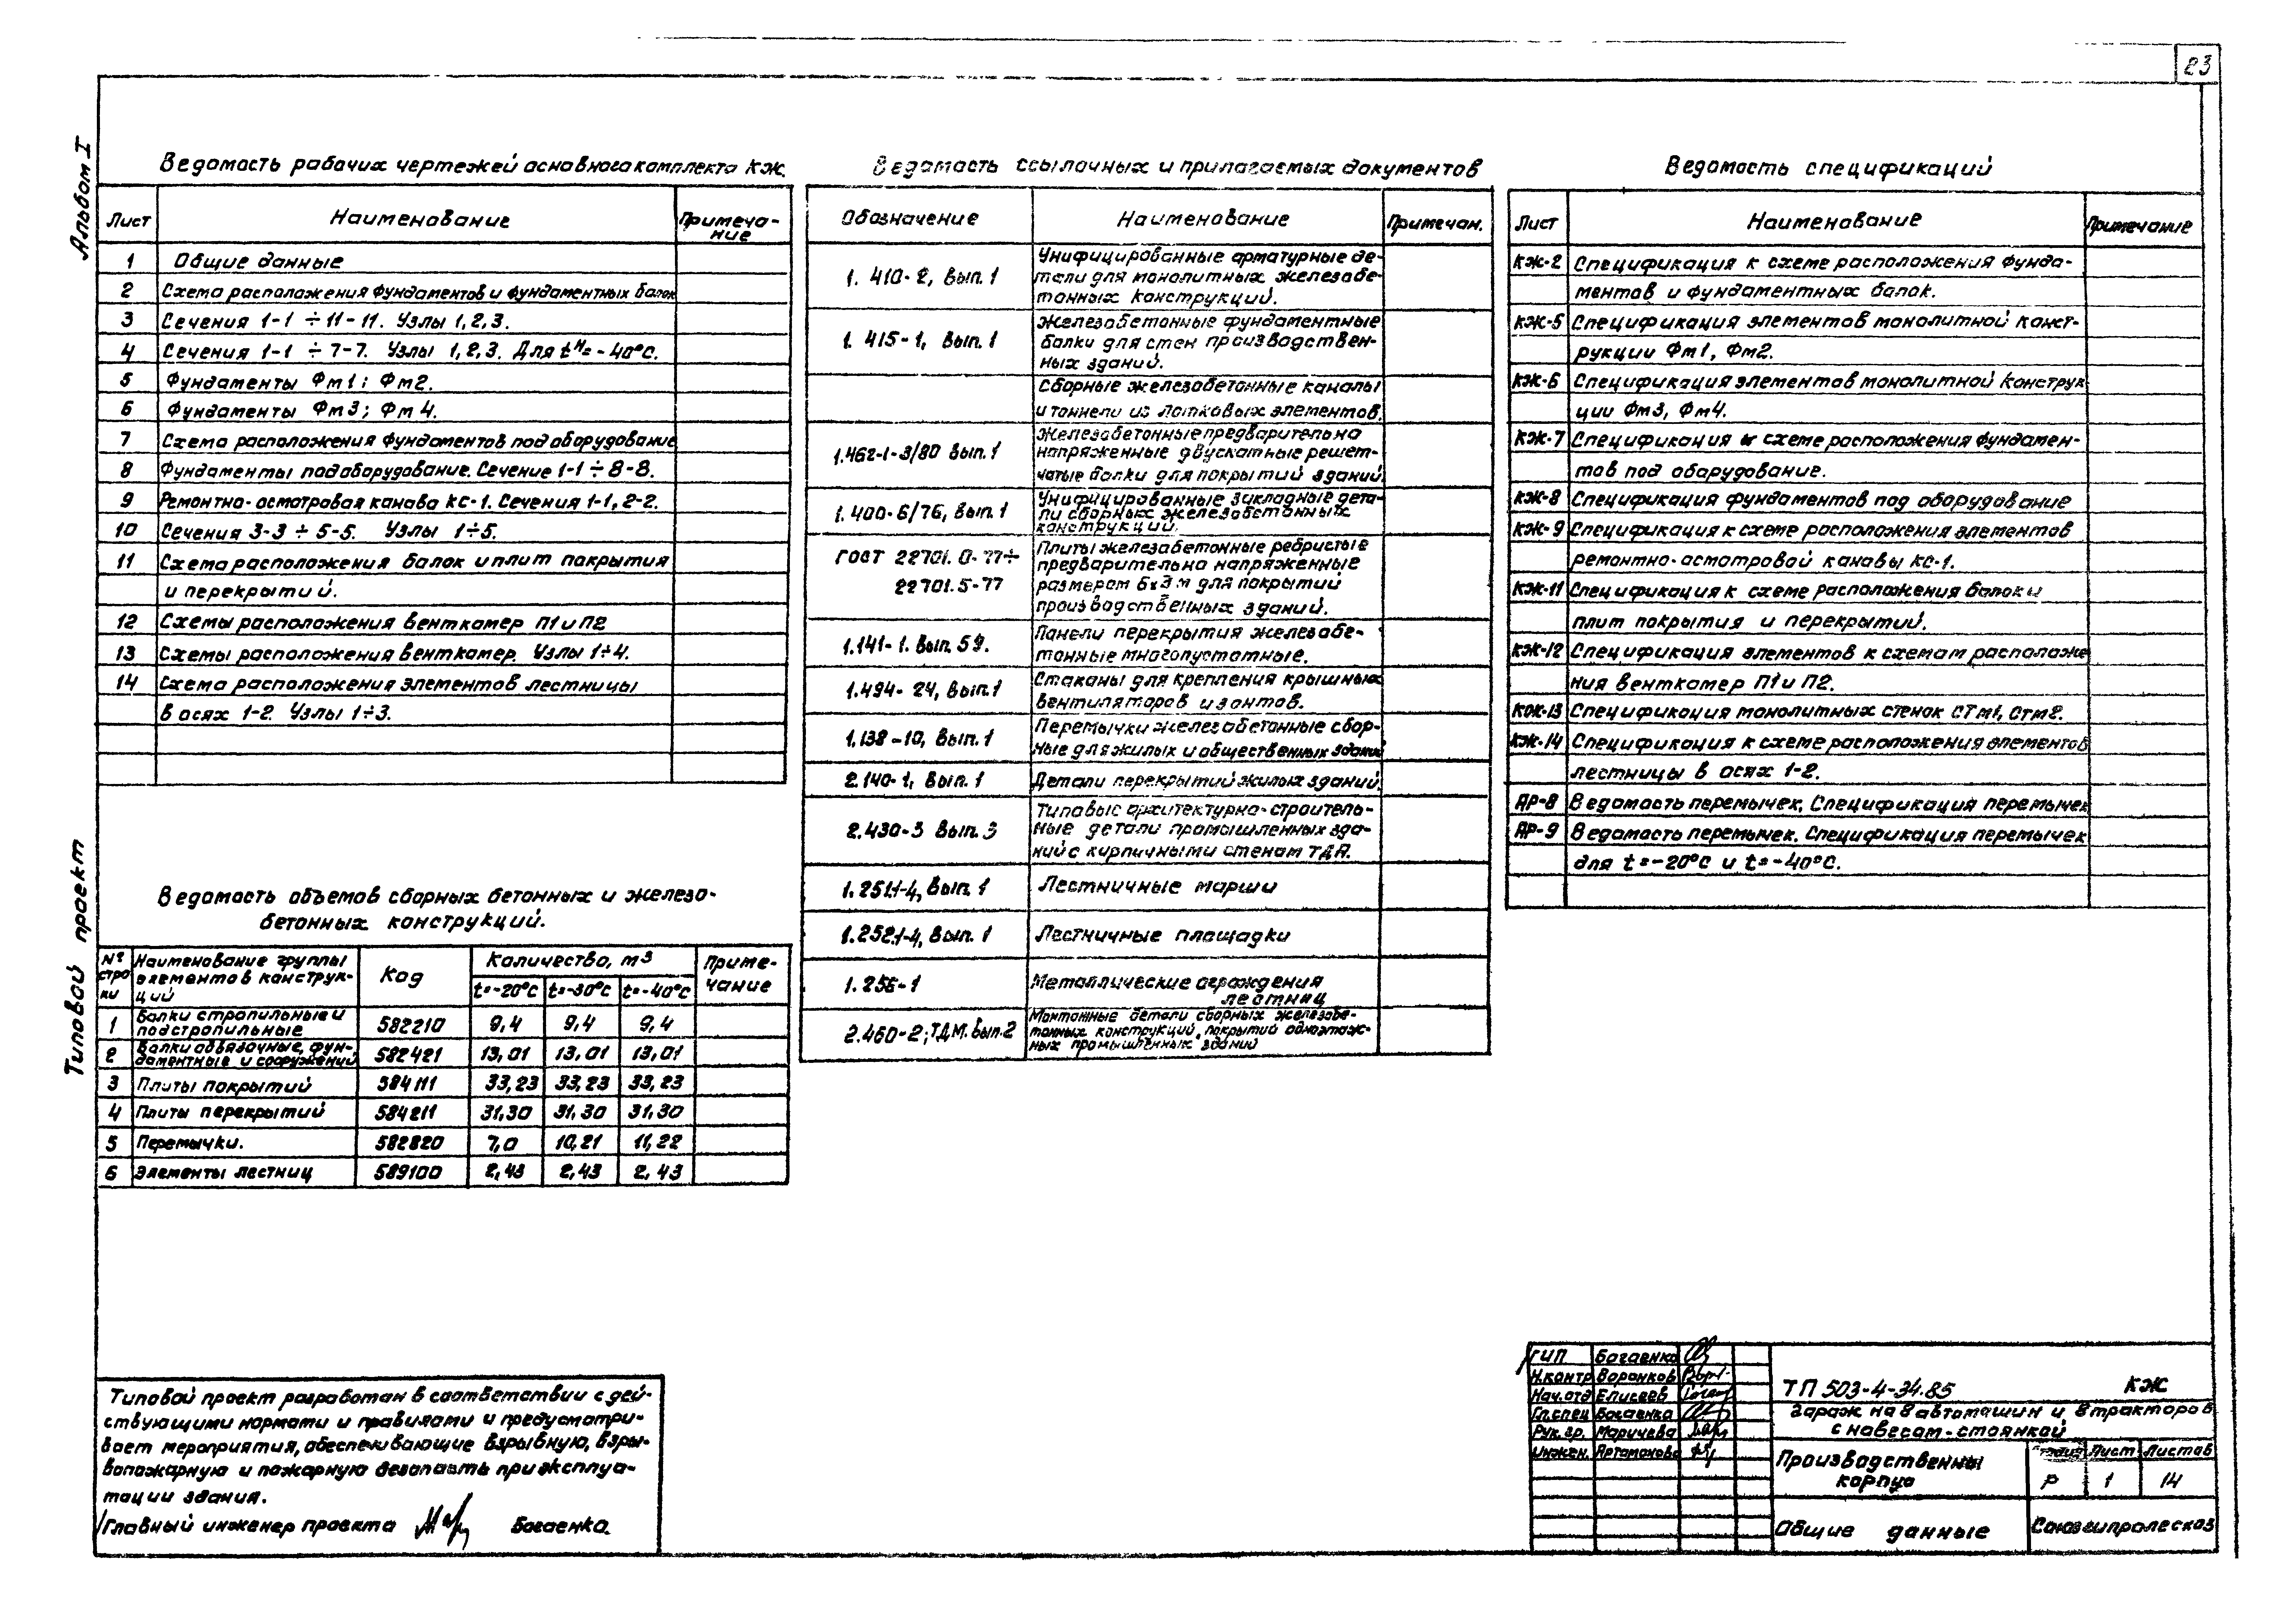 23
Альбом I
Типовой проект
Ведомость рабочих чертежей основного комплекта КЖ.
Лист Наименование Примеча-
ние
1 Общие данные
2 Схема расположения фундаментов и фундаментных балок
3 Сечения 1-1 ÷ 11-11. Узлы 1,2,3.
4 Сечения 1-1 ÷ 7-7. Узлы 1,2,3. Для tн=-40°С.
5 Фундаменты Фм1; Фм2.
6 Фундаменты Фм3; Фм4.
7 Схема расположения фундаментов под оборудование
8 Фундаменты под оборудование. Сечение 1-1 ÷ 8-8.
9 Ремонтно-осмотровая канава КС-1. Сечения 1-1, 2-2.
10 Сечения 3-3 ÷ 5-5. Узлы 1÷5.
11 Схема расположения балок и плит покрытия
и перекрытий.
12 Схемы расположения венткамер П1 и П2
13 Схемы расположения венткамер. Узлы 1÷4.
14 Схема расположения элементов лестницы
в осях 1-2. Узлы 1÷3.
Ведомость объемов сборных бетонных и железо-
бетонных конструкций.
№ стро ки Наименование группы элементов конструк-ций Код Количество, м3 Приме-чание
t=-20°С t=-30°С t=-40°С
1 Балки стропильные и подстропильные 582210 9,4 9,4 9,4
2 Балки обвязочные, фун-даментные и сооружений 582421 13,01 13,01 13,01
3 Плиты покрытий 584111 33,23 33,23 33,23
4 Плиты перекрытий 584211 31,30 31,30 31,30
5 Перемычки. 582820 7,0 10,21 11,22
6 Элементы лестниц 589100 2,43 2,43 2,43
Типовой проект разработан в соответствии с дей-
ствующими нормами и правилами и предусматри-
вает мероприятия, обеспечивающие взрывную, взры-
вопожарную и пожарную безопасть при эксплуа-
тации здания.
Главный инженер проекта Богаенко.
Ведомость ссылочных и прилагаемых документов
Обозначение Наименование Примечан.
1.410-2, вып.1 Унифицированные арматурные де-
тали для монолитных железобе-
тонных конструкций.
1.415-1, вып.1 Железобетонные фундаментные
балки для стен производствен-
ных зданий.
Сборные железобетонные каналы
и тоннели из лотковых элементов.
1.462-1-3/80 вып.1 Железобетонные предварительно
напряженные двускатные решет-
чатые балки для покрытий зданий
1.400-6/76, вып.1 Унифицированные закладные дета-
ли сборных железобетонных
конструкций.
ГОСТ 22701.0-77÷
22701.5-77 Плиты железобетонные ребристые
предварительно напряженные
размером 6х3м для покрытий
производственных зданий.
1.141-1. вып. 59. Панели перекрытия железобе-
тонные многопустотные.
1.494-24, вып.1 Стаканы для крепления крышных
вентиляторов и зонтов.
1.138-10, вып.1 Перемычки железобетонные сбор-
ные для жилых и общественных зданий
2.140-1, вып.1 Детали перекрытий жилых зданий.
2.430-3 вып.3 Типовые архитектурно-строитель-
ные детали промышленных зда-
ний с кирпичными стенам ТДА.
1.251.1-4, вып.1 Лестничные марши
1.252.1-4, вып.1 Лестничные площадки
1.256-1 Металлические ограждения
лестниц
2.460-2; ТДМ. вып.2 Монтажные детали сборных железобе-
тонных конструкций, покрытий одноэтаж-
ных промышленных зданий
Ведомость спецификаций
Лист Наименование Примечание
КЖ-2 Спецификация к схеме расположения фунда-
ментов и фундаментных балок.
КЖ-5 Спецификация элементов монолитной конст-
рукции Фм1, Фм2.
КЖ-6 Спецификация элементов монолитной конструк
ции Фм3, Фм4.
КЖ-7 Спецификация к схеме расположения фундамен-
тов под оборудование.
КЖ-8 Спецификация фундаментов под оборудование
КЖ-9 Спецификация к схеме расположения элементов
ремонтно-осмотровой канавы КС-1.
КЖ-11 Спецификация к схеме расположения балок и
плит покрытия и перекрытий.
КЖ-12 Спецификация элементов к схемам расположе
ния венткамер П1 и П2.
КЖ-13 Спецификация монолитных стенок СТм1, Стм2.
КЖ-14 Спецификация к схеме расположения элементов
лестницы в осях 1-2.
АР-8 Ведомость перемычек, Спецификация перемычек
АР-9 Ведомость перемычек. Спецификация перемычек
для t=-20°С и t=-40°С.
ГИП Богаенко
Н.контр Воронков
Нач.отд Елисеев
Гл.спец Богаенко
Рук.гр. Маричева
Инжен. Артамонова
ТП 503-4-34.85 КЖ
Гараж на 8 автомашин и 8 тракторов
с навесом-стоянкой
Производственны
корпус
Стадия Лист Листов
Р 1 14
Общие данные
Союзгипролесхоз